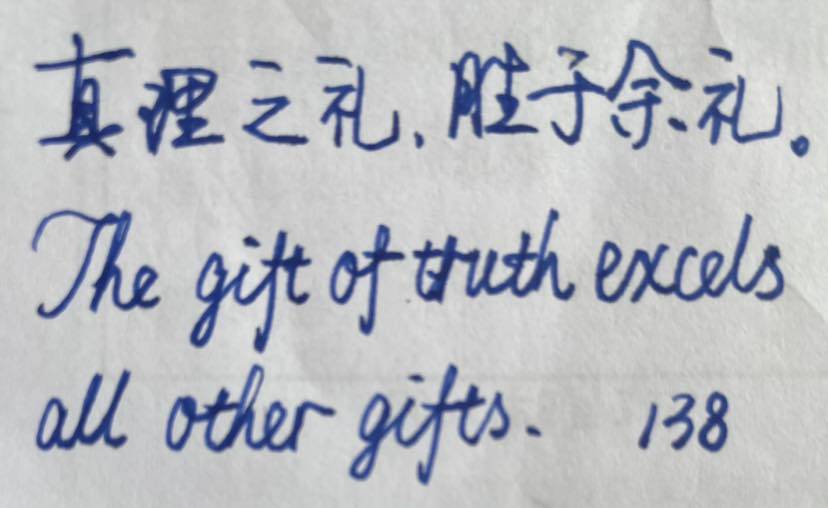 真理之礼，胜于余礼。
The gift of truth excels
all other gifts. 138